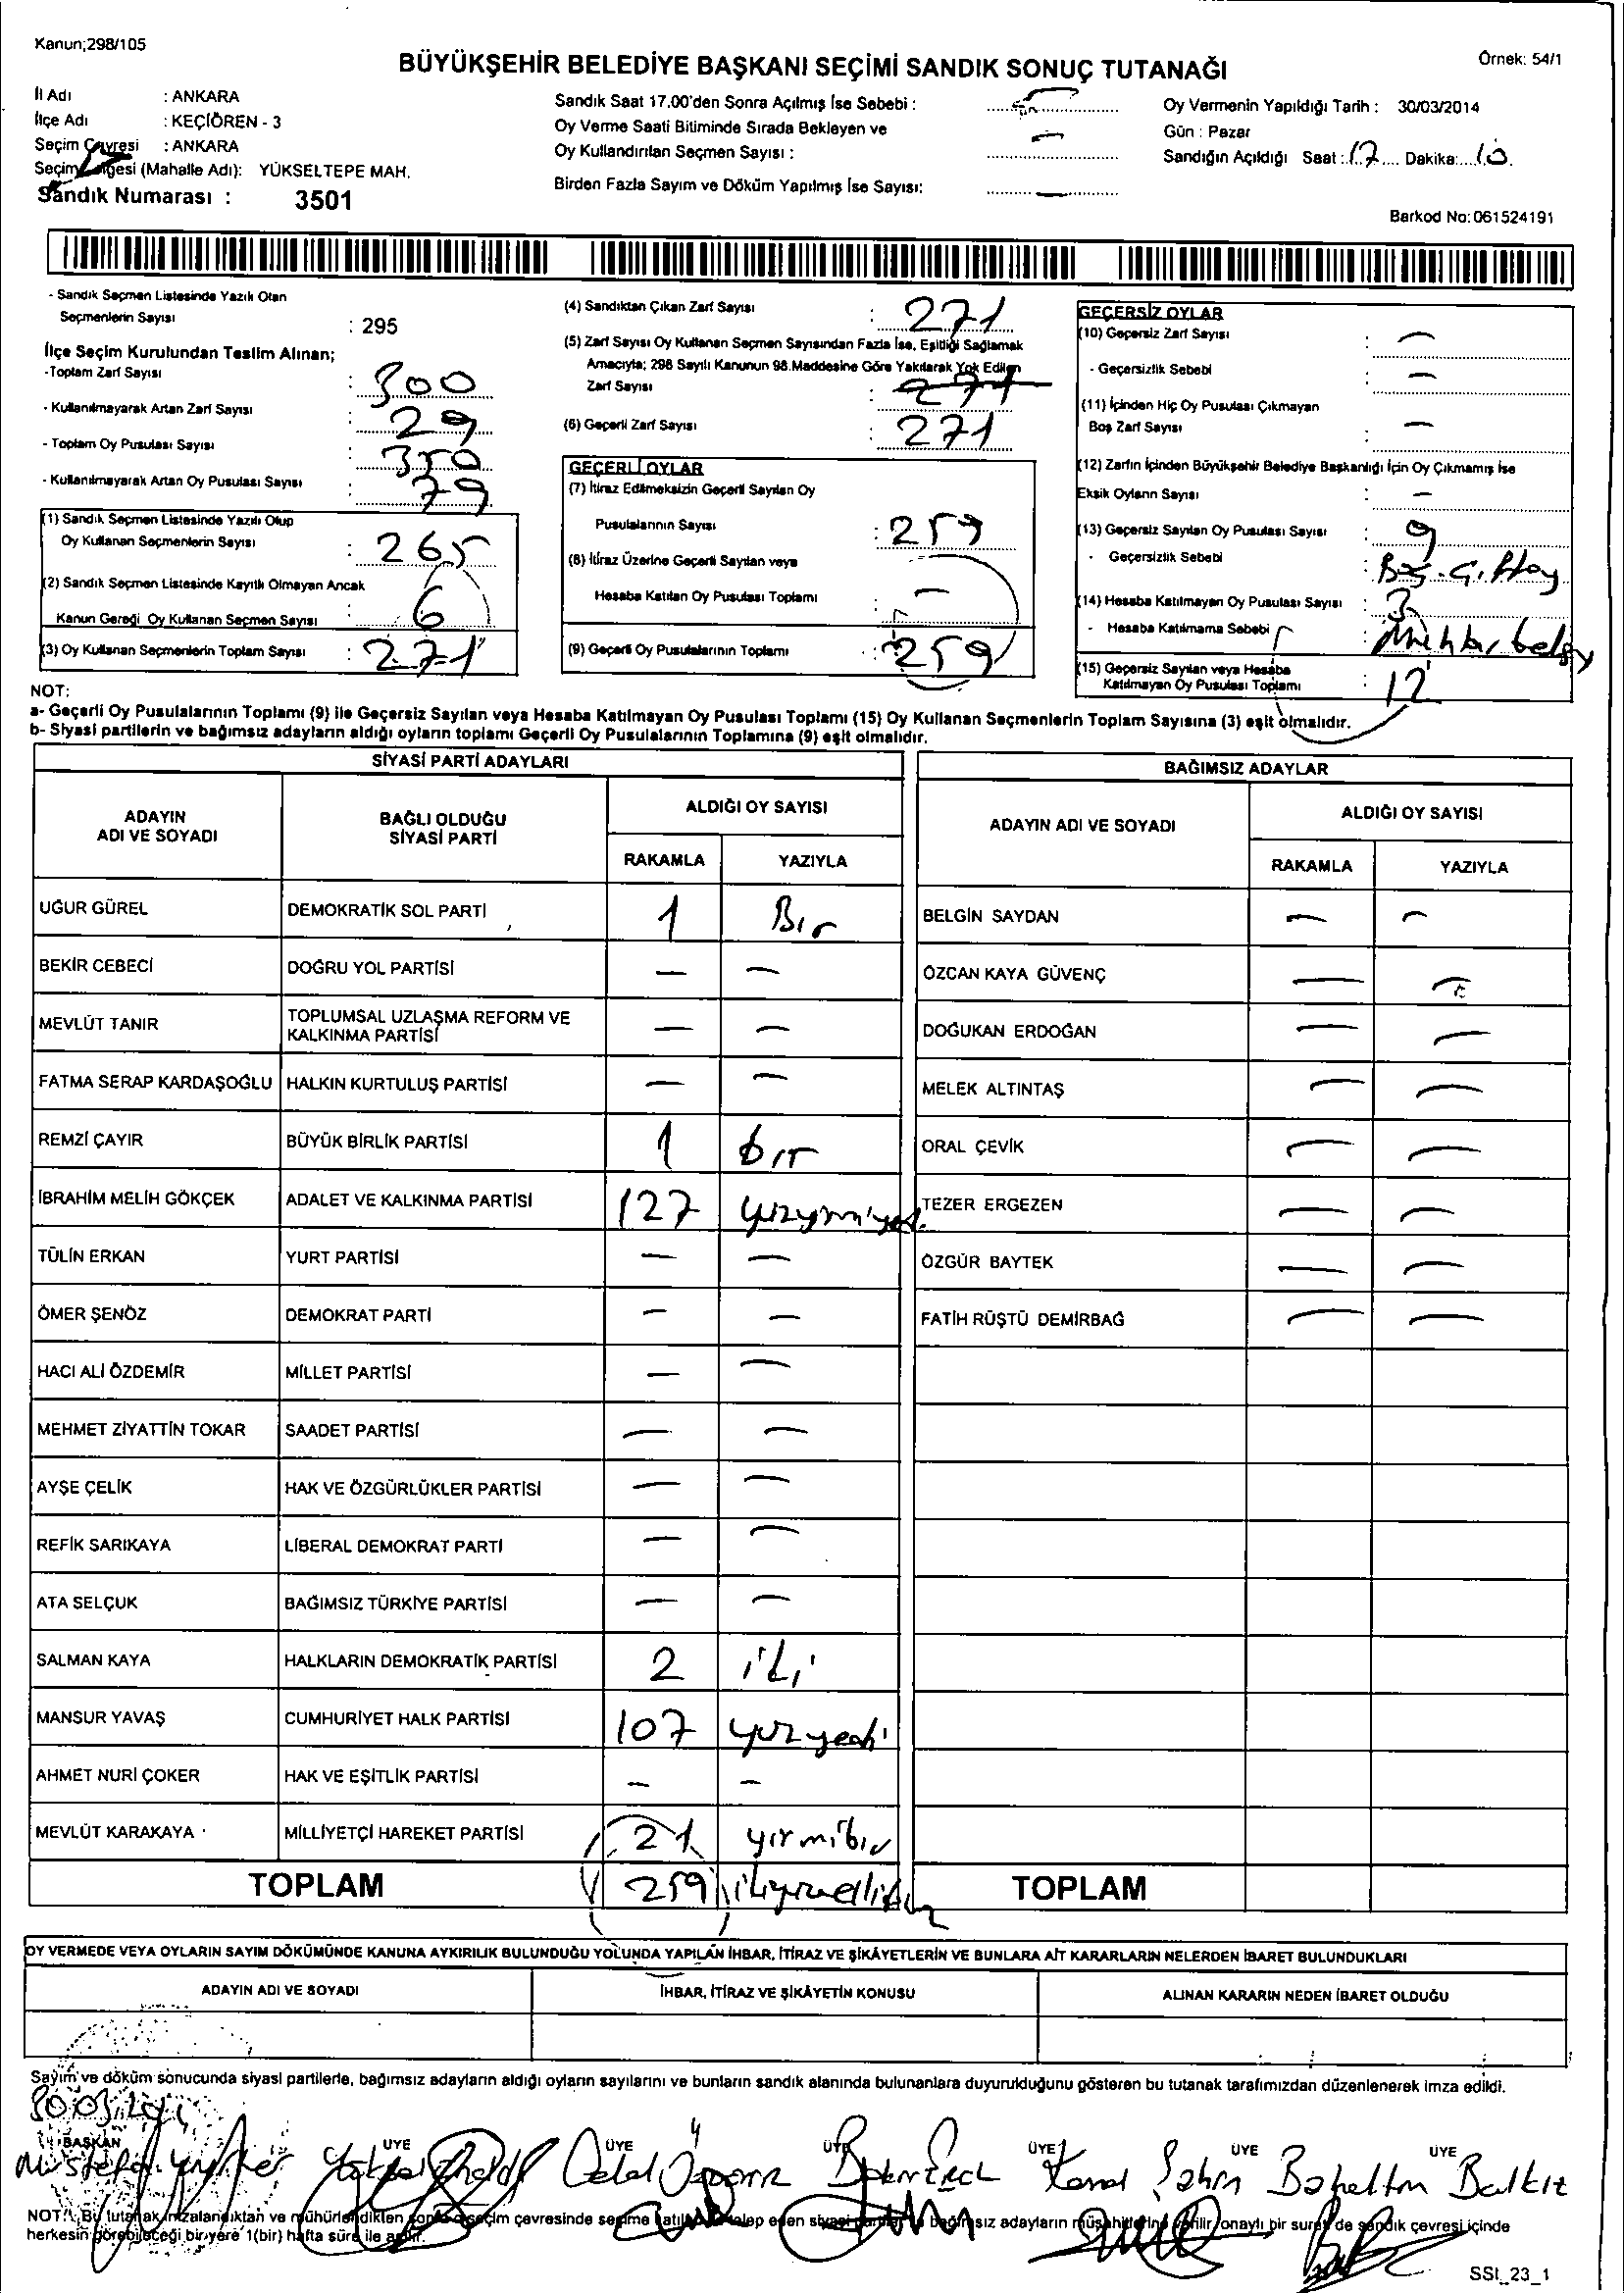 Kanun;298/105
BÜYÜKŞEHİR BELEDİYE BAŞKANI SEÇİMİ SANDIK SONUÇ TUTANAĞI
Örnek: 54/1
İl Adı : ANKARA
İlçe Adı : KEÇİÖREN - 3
Seçim Çevresi : ANKARA
Seçim Bölgesi (Mahalle Adı): YÜKSELTEPE MAH.
Sandık Numarası : 3501
Sandık Saat 17.00'den Sonra Açılmış İse Sebebi :
Oy Verme Saati Bitiminde Sırada Bekleyen ve
Oy Kullandırılan Seçmen Sayısı : —
Birden Fazla Sayım ve Döküm Yapılmış İse Sayısı: —
Oy Vermenin Yapıldığı Tarih : 30/03/2014
Gün : Pazar
Sandığın Açıldığı Saat : 17 Dakika: 10
Barkod No: 061524191
- Sandık Seçmen Listesinde Yazılı Olan
Seçmenlerin Sayısı : 295
İlçe Seçim Kurulundan Teslim Alınan;
-Toplam Zarf Sayısı : 300
- Kullanılmayarak Artan Zarf Sayısı : 29
- Toplam Oy Pusulası Sayısı : 350
- Kullanılmayarak Artan Oy Pusulası Sayısı : 79
(1) Sandık Seçmen Listesinde Yazılı Olup
Oy Kullanan Seçmenlerin Sayısı : 265
(2) Sandık Seçmen Listesinde Kayıtlı Olmayan Ancak
Kanun Gereği Oy Kullanan Seçmen Sayısı : 6
(3) Oy Kullanan Seçmenlerin Toplam Sayısı : 271
(4) Sandıktan Çıkan Zarf Sayısı : 271
(5) Zarf Sayısı Oy Kullanan Seçmen Sayısından Fazla İse, Eşitliği Sağlamak
Amacıyla; 298 Sayılı Kanunun 98.Maddesine Göre Yakılarak Yok Edilen
Zarf Sayısı : 271
(6) Geçerli Zarf Sayısı : 271
GEÇERLİ OYLAR
(7) İtiraz Edilmeksizin Geçerli Sayılan Oy
Pusulalarının Sayısı : 259
(8) İtiraz Üzerine Geçerli Sayılan veya
Hesaba Katılan Oy Pusulası Toplamı : —
(9) Geçerli Oy Pusulalarının Toplamı : 259
GEÇERSİZ OYLAR
(10) Geçersiz Zarf Sayısı : —
- Geçersizlik Sebebi : —
(11) İçinden Hiç Oy Pusulası Çıkmayan
Boş Zarf Sayısı : —
(12) Zarfın İçinden Büyükşehir Belediye Başkanlığı İçin Oy Çıkmamış İse
Eksik Oyların Sayısı : —
(13) Geçersiz Sayılan Oy Pusulası Sayısı : 9
- Geçersizlik Sebebi :
(14) Hesaba Katılmayan Oy Pusulası Sayısı : 3
- Hesaba Katılmama Sebebi :
(15) Geçersiz Sayılan veya Hesaba
Katılmayan Oy Pusulası Toplamı : 12
NOT:
a- Geçerli Oy Pusulalarının Toplamı (9) ile Geçersiz Sayılan veya Hesaba Katılmayan Oy Pusulası Toplamı (15) Oy Kullanan Seçmenlerin Toplam Sayısına (3) eşit olmalıdır.
b- Siyasi partilerin ve bağımsız adayların aldığı oyların toplamı Geçerli Oy Pusulalarının Toplamına (9) eşit olmalıdır.
SİYASİ PARTİ ADAYLARI
ADAYIN ADI VE SOYADI
BAĞLI OLDUĞU SİYASİ PARTİ
ALDIĞI OY SAYISI
RAKAMLA YAZIYLA
UĞUR GÜREL DEMOKRATİK SOL PARTİ 1 Bir
BEKİR CEBECİ DOĞRU YOL PARTİSİ — —
MEVLÜT TANIR TOPLUMSAL UZLAŞMA REFORM VE KALKINMA PARTİSİ — —
FATMA SERAP KARDAŞOĞLU HALKIN KURTULUŞ PARTİSİ — —
REMZİ ÇAYIR BÜYÜK BİRLİK PARTİSİ 1 bir
İBRAHİM MELİH GÖKÇEK ADALET VE KALKINMA PARTİSİ 127
TÜLİN ERKAN YURT PARTİSİ — —
ÖMER ŞENÖZ DEMOKRAT PARTİ — —
HACI ALİ ÖZDEMİR MİLLET PARTİSİ — —
MEHMET ZİYATTİN TOKAR SAADET PARTİSİ — —
AYŞE ÇELİK HAK VE ÖZGÜRLÜKLER PARTİSİ — —
REFİK SARIKAYA LİBERAL DEMOKRAT PARTİ — —
ATA SELÇUK BAĞIMSIZ TÜRKİYE PARTİSİ — —
SALMAN KAYA HALKLARIN DEMOKRATİK PARTİSİ 2 iki
MANSUR YAVAŞ CUMHURİYET HALK PARTİSİ 107 yüzyedi
AHMET NURİ ÇOKER HAK VE EŞİTLİK PARTİSİ — —
MEVLÜT KARAKAYA MİLLİYETÇİ HAREKET PARTİSİ 21 yirmibir
TOPLAM 259 ikiyüzellidokuz
BAĞIMSIZ ADAYLAR
ADAYIN ADI VE SOYADI
ALDIĞI OY SAYISI
RAKAMLA YAZIYLA
BELGİN SAYDAN — —
ÖZCAN KAYA GÜVENÇ — —
DOĞUKAN ERDOĞAN — —
MELEK ALTINTAŞ — —
ORAL ÇEVİK — —
TEZER ERGEZEN — —
ÖZGÜR BAYTEK — —
FATİH RÜŞTÜ DEMİRBAĞ — —
TOPLAM
OY VERMEDE VEYA OYLARIN SAYIM DÖKÜMÜNDE KANUNA AYKIRILIK BULUNDUĞU YOLUNDA YAPILAN İHBAR, İTİRAZ VE ŞİKÂYETLERİN VE BUNLARA AİT KARARLARIN NELERDEN İBARET BULUNDUKLARI
ADAYIN ADI VE SOYADI İHBAR, İTİRAZ VE ŞİKÂYETİN KONUSU ALINAN KARARIN NEDEN İBARET OLDUĞU
Sayım ve döküm sonucunda siyasi partilerle, bağımsız adayların aldığı oyların sayılarını ve bunların sandık alanında bulunanlara duyurulduğunu gösteren bu tutanak tarafımızdan düzenlenerek imza edildi.
30.03.2014
BAŞKAN ÜYE ÜYE ÜYE ÜYE ÜYE ÜYE
Mustafa Celal Kemal Şahin Bahattin Balkız
NOT: Bu tutanak imzalandıktan ve mühürlendikten sonra seçim çevresinde seçime katılan talep eden siyasi partiler bağımsız adayların müşahitlerine verilir onaylı bir sureti de sandık çevresi içinde
herkesin görebileceği bir yere 1(bir) hafta süre ile asılır.
SSI_23_1